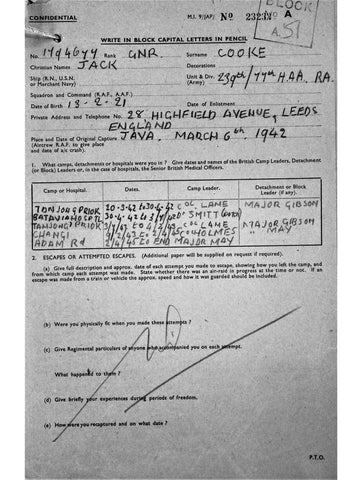 CONFIDENTIAL
M.I. 9/JAP/ No
BLOCK
A
A51
WRITE IN BLOCK CAPITAL LETTERS IN PENCIL
No. 1794677 Rank GNR. Surname COOKE
Christian Names JACK Decorations
Ship (R.N., U.S.N. or Merchant Navy) Unit & Div. (Army) 239th/77th H.AA. RA.
Squadron and Command (R.A.F., A.A.F.)
Date of Birth 13-2-21 Date of Enlistment
Private Address and Telephone No. 28 HIGHFIELD AVENUE, LEEDS
ENGLAND
Place and Date of Original Capture JAVA. MARCH 6th 1942
(Aircrew R.A.F. to give place and date of a/c crash).
1. What camps, detachments or hospitals were you in? Give dates and names of the British Camp Leaders, Detachment
(or Block) Leaders or, in the case of hospitals, the Senior British Medical Officers.
Camp or Hospital. Dates. Camp Leader. Detachment or Block Leader (if any).
TANJONG PRIOK 20-3-42 to 30-4-42 COL LANE MAJOR GIBSON
BATAVIA HOSPTL 30-4-42 to
TANJONG PRIOK to COL LANE MAJOR GIBSON
CHANGI to 2/4/45 COL HOLMES " MAY
ADAM Rd 2/4/45 to END MAJOR MAY
2. ESCAPES OR ATTEMPTED ESCAPES. (Additional paper will be supplied on request if required).
(a) Give full description and approx. date of each attempt you made to escape, showing how you left the camp, and
from which camp each attempt was made. State whether there was an air-raid in progress at the time or not. If an
escape was made from a train or vehicle the approx. speed and how it was guarded should be included.
(b) Were you physically fit when you made these attempts?
(c) Give Regimental particulars of anyone who accompanied you on each attempt.
What happened to them?
(d) Give briefly your experiences during periods of freedom.
(e) How were you recaptured and on what date?
P.T.O.